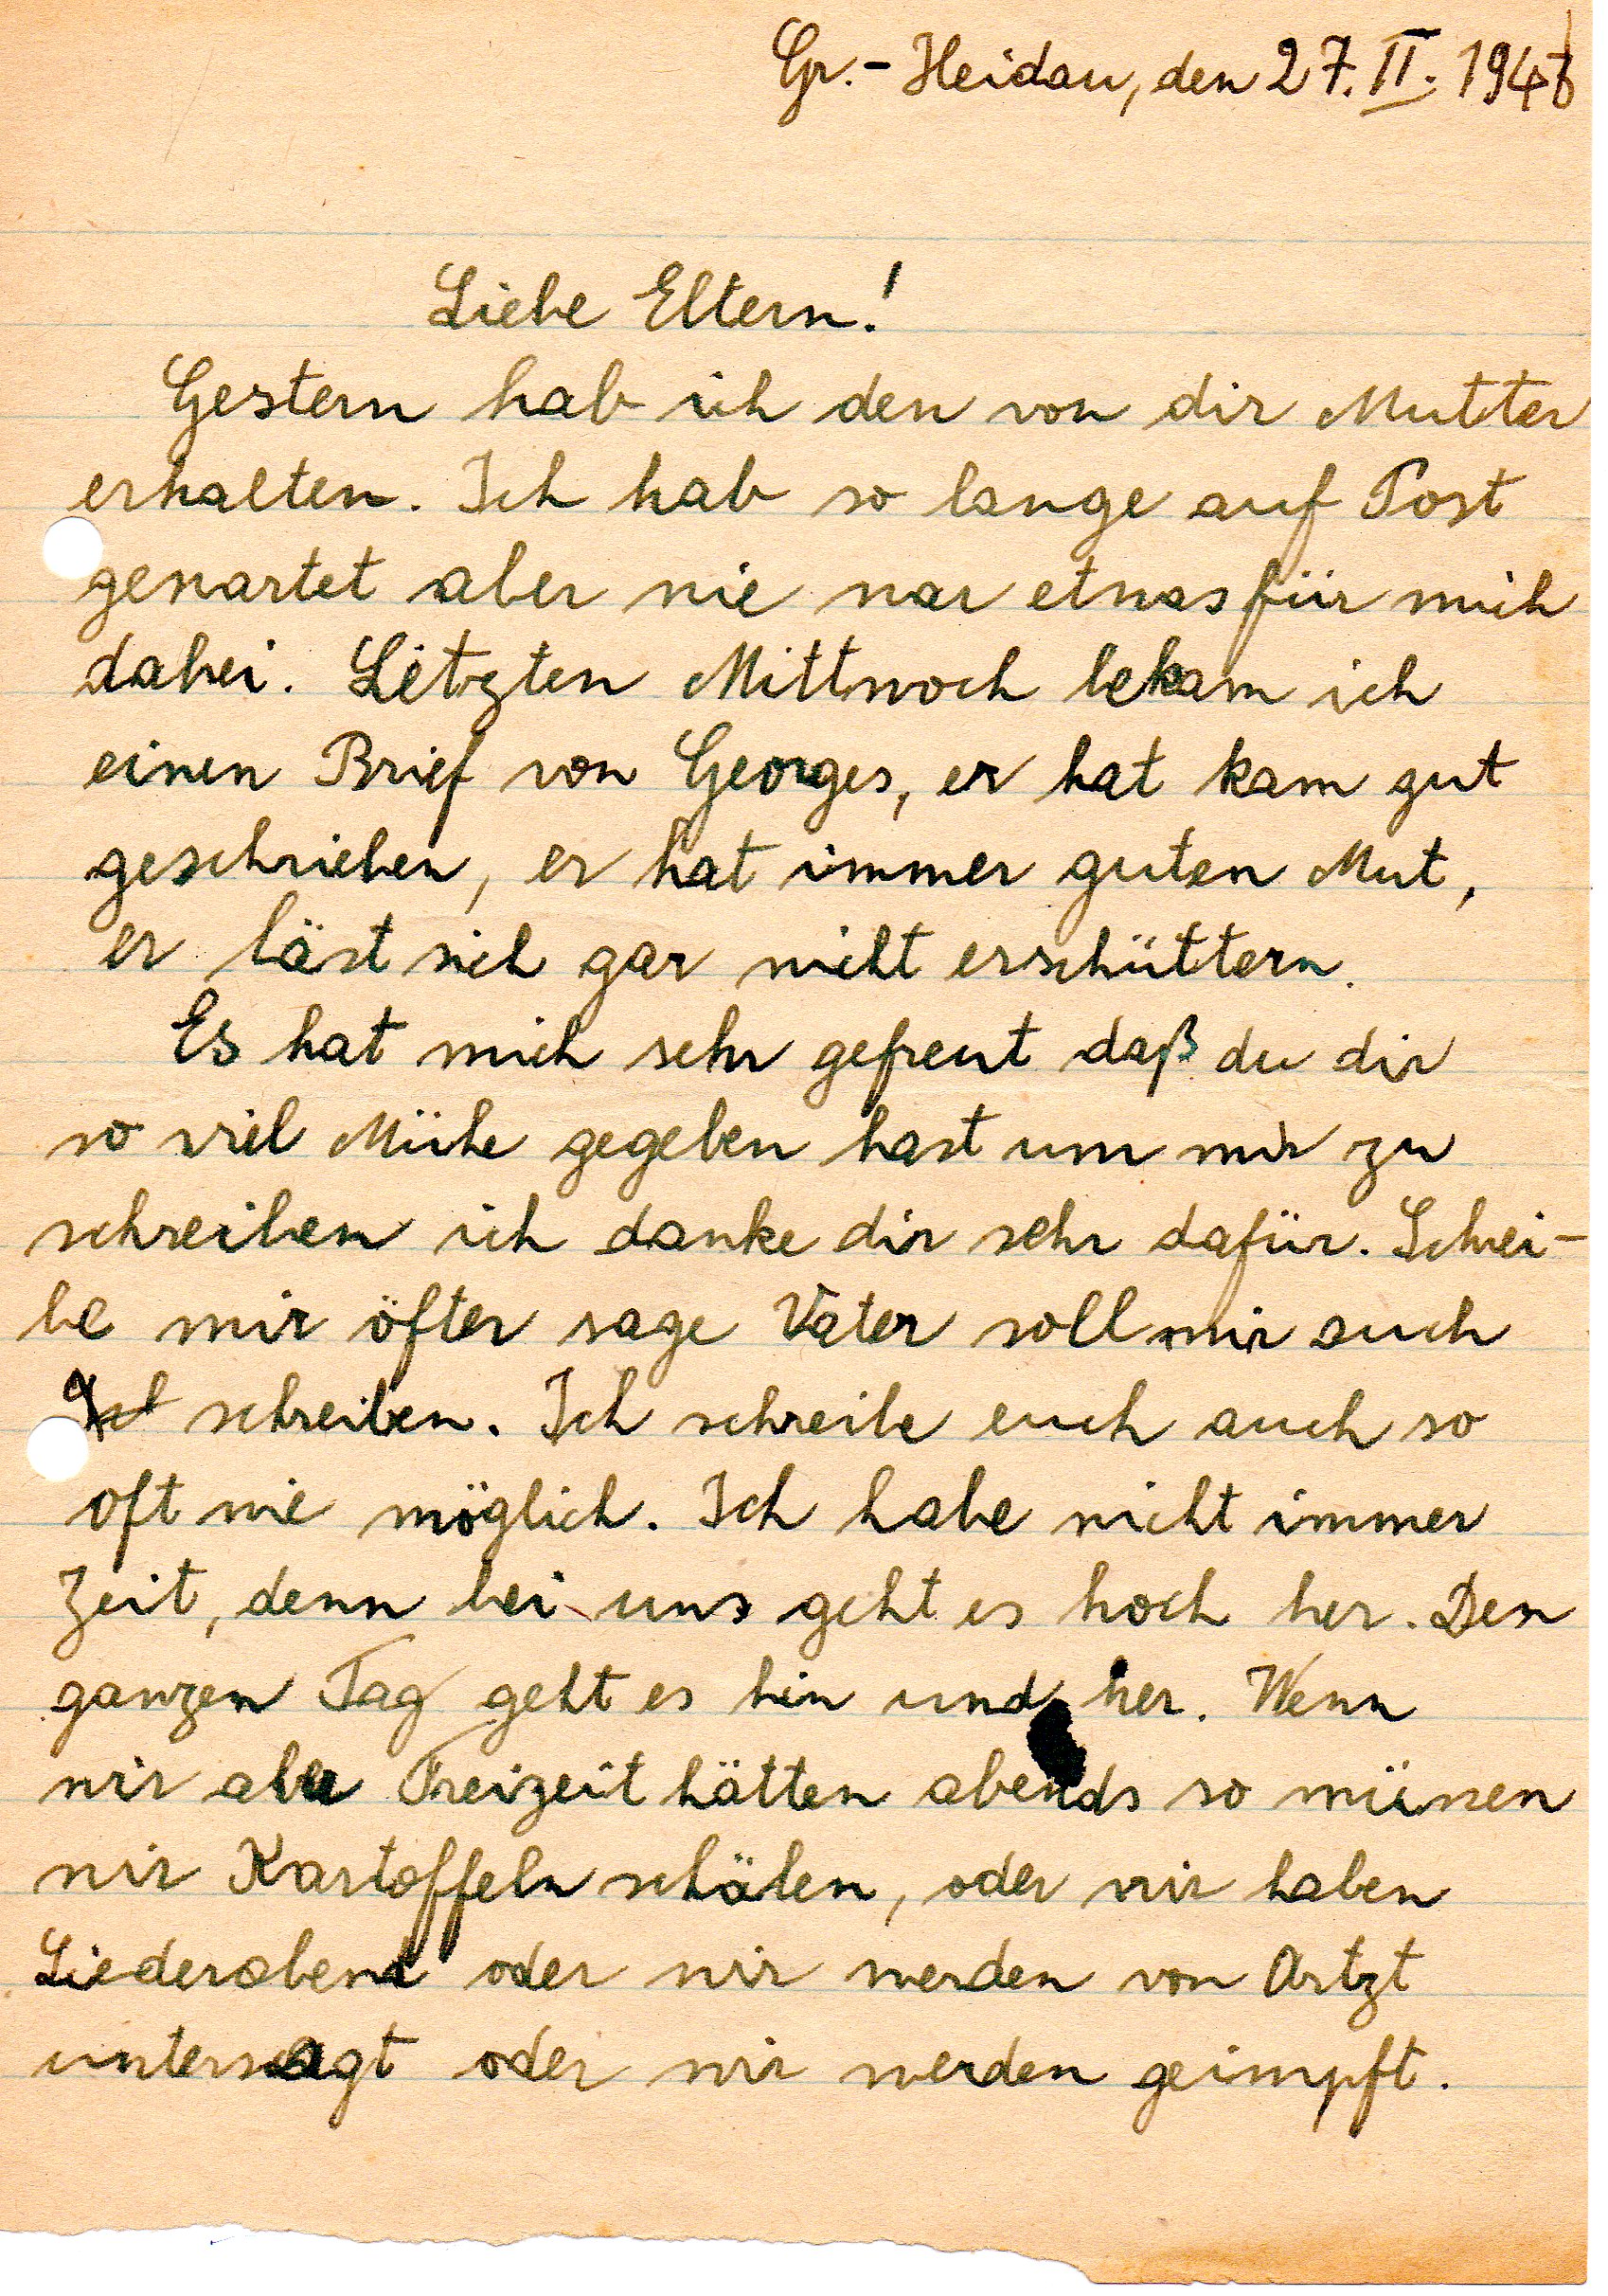 Gr.-Heidau, den 27. II. 194
Liebe Eltern!
Gestern hab ich den von dir Mutter
erhalten. Ich hab so lange auf Post
gewartet aber nie war etwas für mich
dabei. Letzten Mittwoch bekam ich
einen Brief von Georges, er hat kam gut
geschrieben, er hat immer guten Mut,
er läst sich gar nicht erschüttern.
Es hat mich sehr gefreut daß du dir
so viel Mühe gegeben hast um mir zu
schreiben ich danke dir sehr dafür. Schrei-
be mir öfter sage Vater soll mir auch
schreiben. Ich schreibe euch auch so
oft wie möglich. Ich habe nicht immer
Zeit, denn bei uns geht es hoch her. Den
ganzen Tag geht es hin und her. Wenn
wir aber Freizeit hätten abends so müssen
wir Kartoffeln schälen, oder wir haben
Liederabend oder wir werden von Artzt
untersagt oder wir werden geimpft.